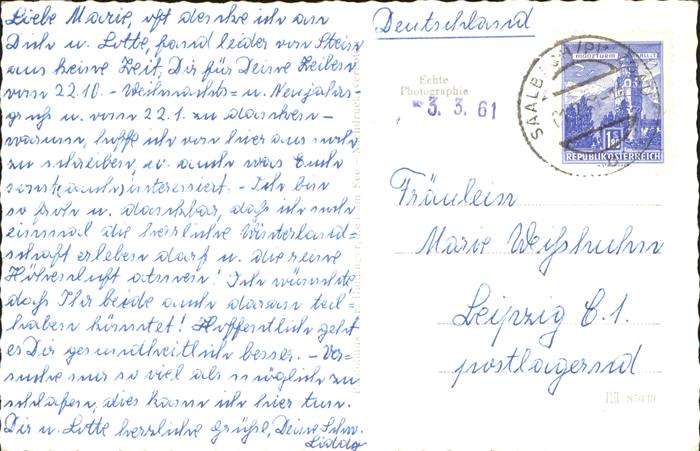 Liebe Marie, oft denke ich an
Dich u. Lotte, fand leider von Stein
aus keine Zeit, Dir für Deine lieben
vom 22.10. - Weihnachts- u. Neujahrs-
gruß u. vom 22.1. zu danken -
warum, hoffe ich von hier aus noch
zu schreiben, u. auch was Euch
sonst (auch) interessiert. - Ich bin
so froh u. dankbar, daß ich noch
einmal die herrliche Winterland=
schaft erleben darf u. die reine
Höhenluft atmen! Ich wünschte,
daß Ihr beide auch daran teil=
haben könntet! Hoffentlich geht
es Dir gesundheitlich besser. - Ver=
suche nur so viel als möglich zu
schlafen, dies kann ich hier tun.
Dir u. Lotte herzliche Grüße, Deine Schw.
Deutschland
Echte
Photographie
3. 3. 61
SAALB
MÜNZTURM
1.50
REPUBLIK ÖSTERREICH
Fräulein
Marie Weißhuhn
Leipzig C.1.
postlagernd